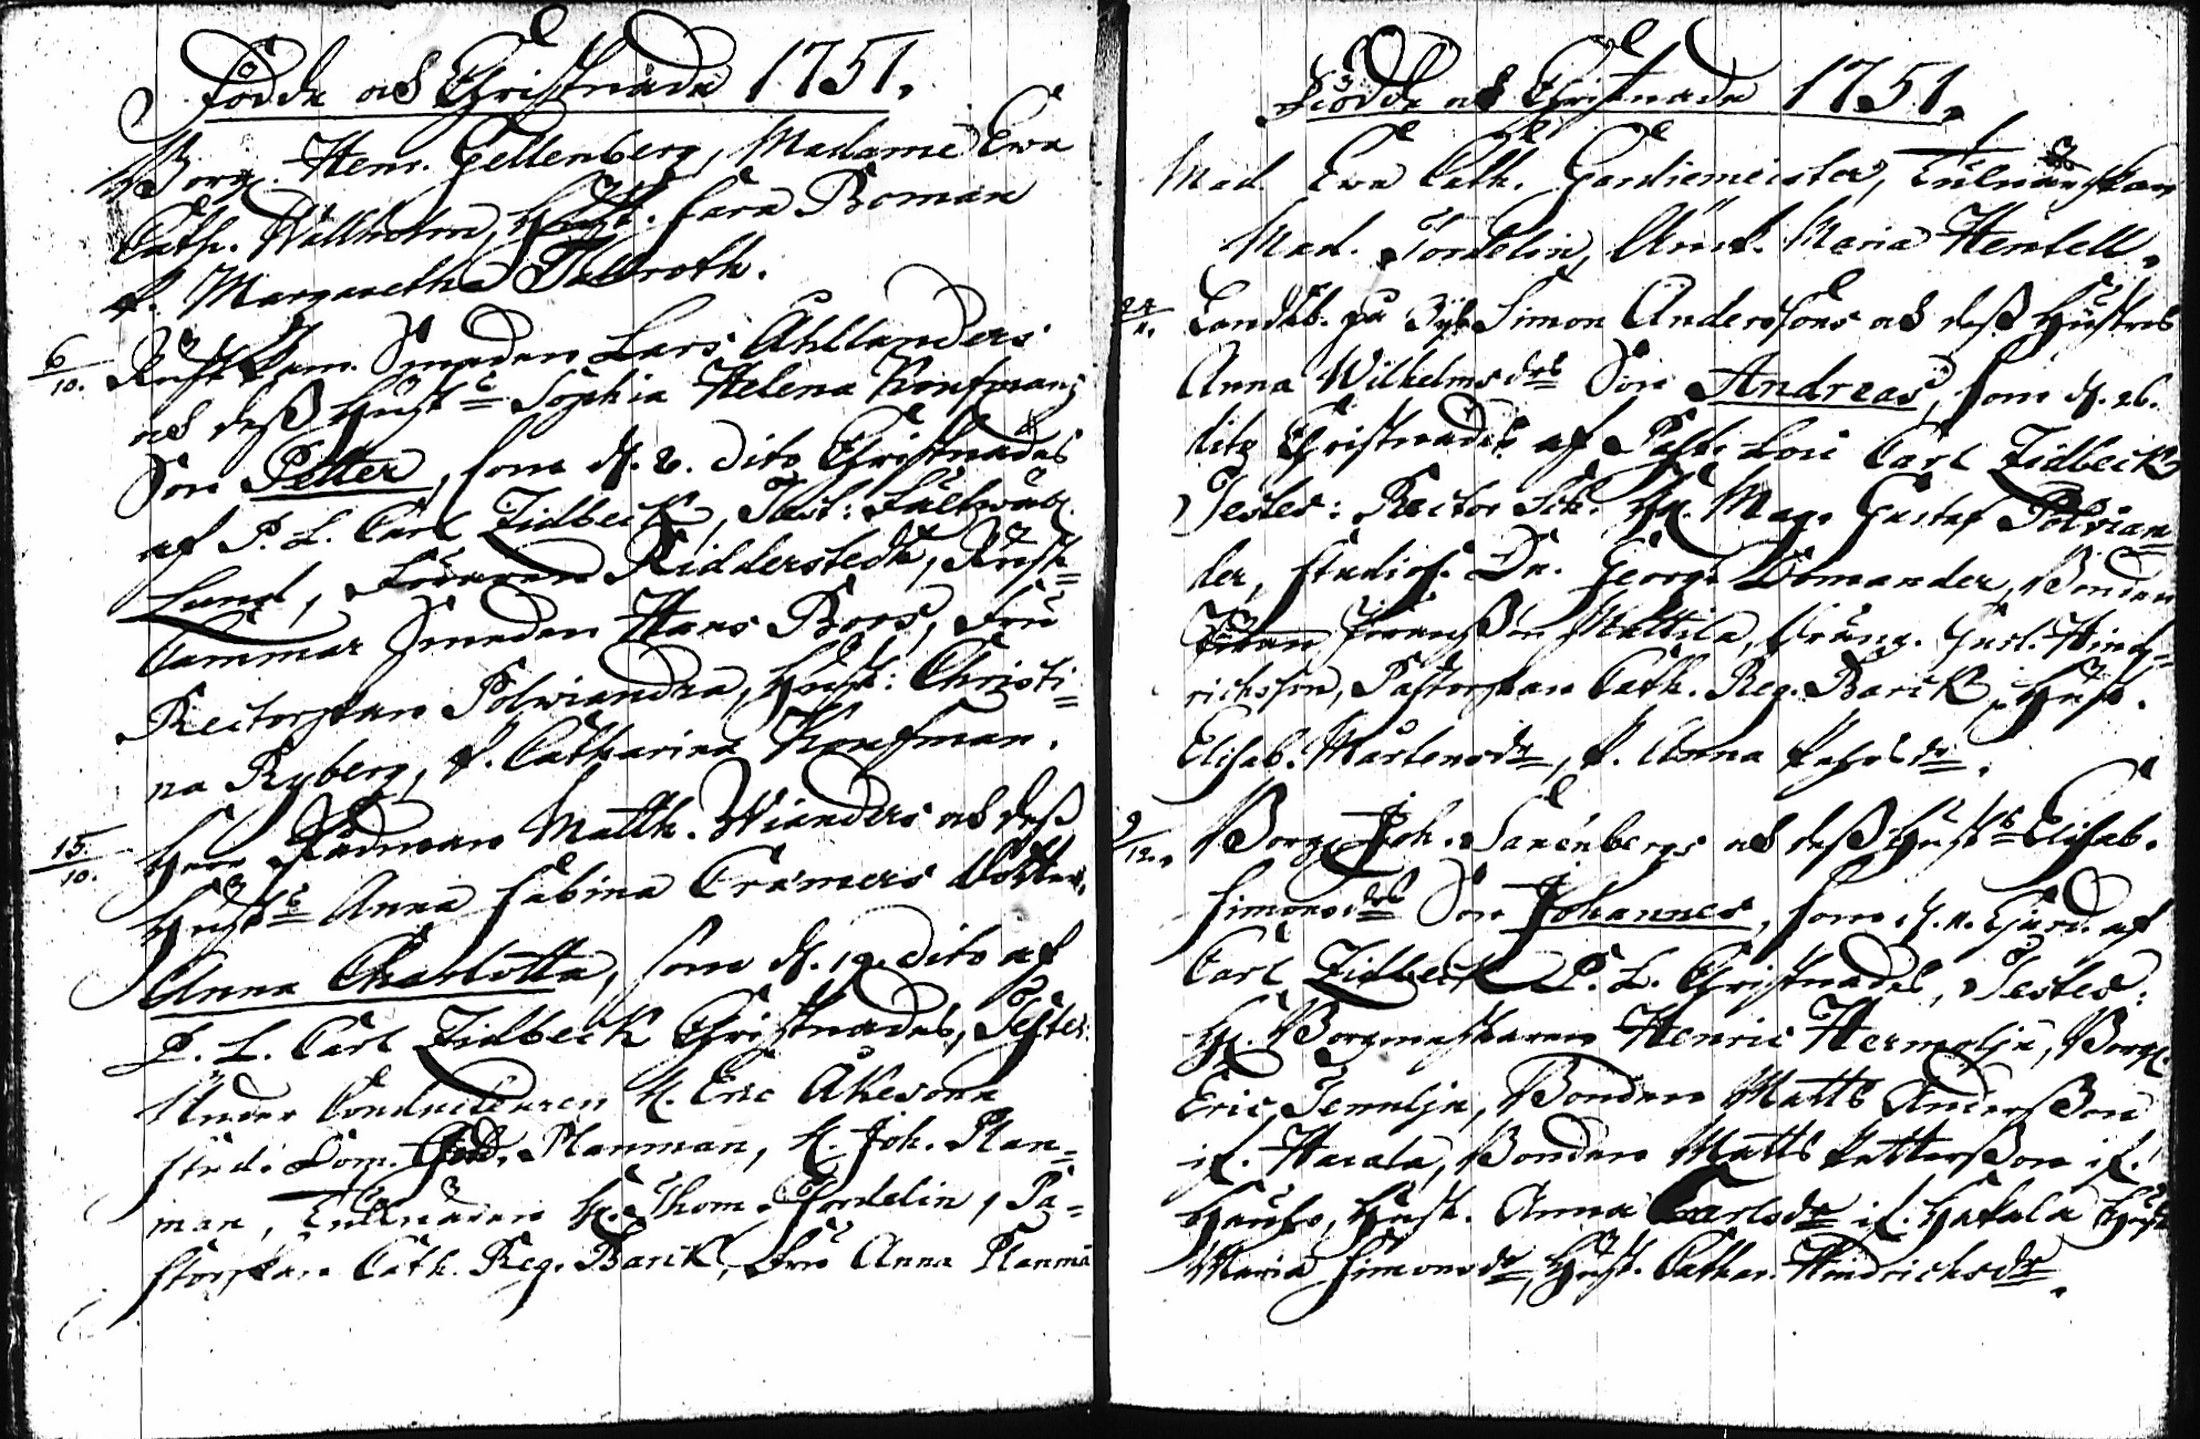 Födde och Christnade 1751.
Borg. Henr. Gellenberg, Madame Ewa
Cath. Wallholm, Hust. Sara Boman
P. Margaretha Tallroth.
6/10. Rust Kam. Smeden Lars Ahllanders
och dess Hust. Sophia Helena Kaufmans
Son Petter, som d. 8. dito Christnades
af P. L. Carl Lidbeck, Test: Fältväb.
Lund, Föraren Ridderstedt, Rust=
Cammar Smeden Hans Boos, Fru
Rectorskan Polviandra, Hust: Christi=
na Ryberg, P. Catharina Kaufman.
15/10. Herr Rådman Matth. Wianders och dess
Hust. Anna Sabina Cramers dotter
Anna Charlotta, som d. 19. dito af
P. L. Carl Lidbeck Christnades, Testes.
Under Conducteuren H. Eric Åkeson
Stud. Dom. Planman, H. Joh. Plan=
man, Tullnären H. Thom. Tordelin, Pa=
storskan Cath. Reg. Barck, Fru Anna Planma
Födde och Christnade 1751.
Mad. Ewa Cath. Gardiemeister, Tullnärskan
Mad. Tordelin, Maria Hentell.
24/11. Landtb. på Simon Anderssons och dess Hustrus
Anna Wilhelmsdrs Son Andreas, som d. 26.
dito Christnades af Past. Loci Carl Lidbeck
Testes: Rector Sch. H. Mag. Gustaf Polvian=
der, Studios. Dn. Georg. Domander, Bonden
Johan Jöransson Mattila, Dräng. Gust. Hind=
richsson, Pastorskan Cath. Reg. Barck, Hust.
Elisab. Mårtensdr, P. Anna
9/12. Borg. Joh. Sanénbergs och dess Hust. Elisab.
Simonsdrs Son Johannes, som d. 11. af
Carl Lidbeck P. L. Christnades, Testes:
H. Borgmästaren Henric Hermolja, Borg.
Eric Temelja, Bonden Matts Andersson
if. Harala, Bonden Matts Pettersson if.
Hust. Anna Carlsdr if. Hakala Hust
Maria Simonsdr, Hust. Cathar. Hindrichsdr.